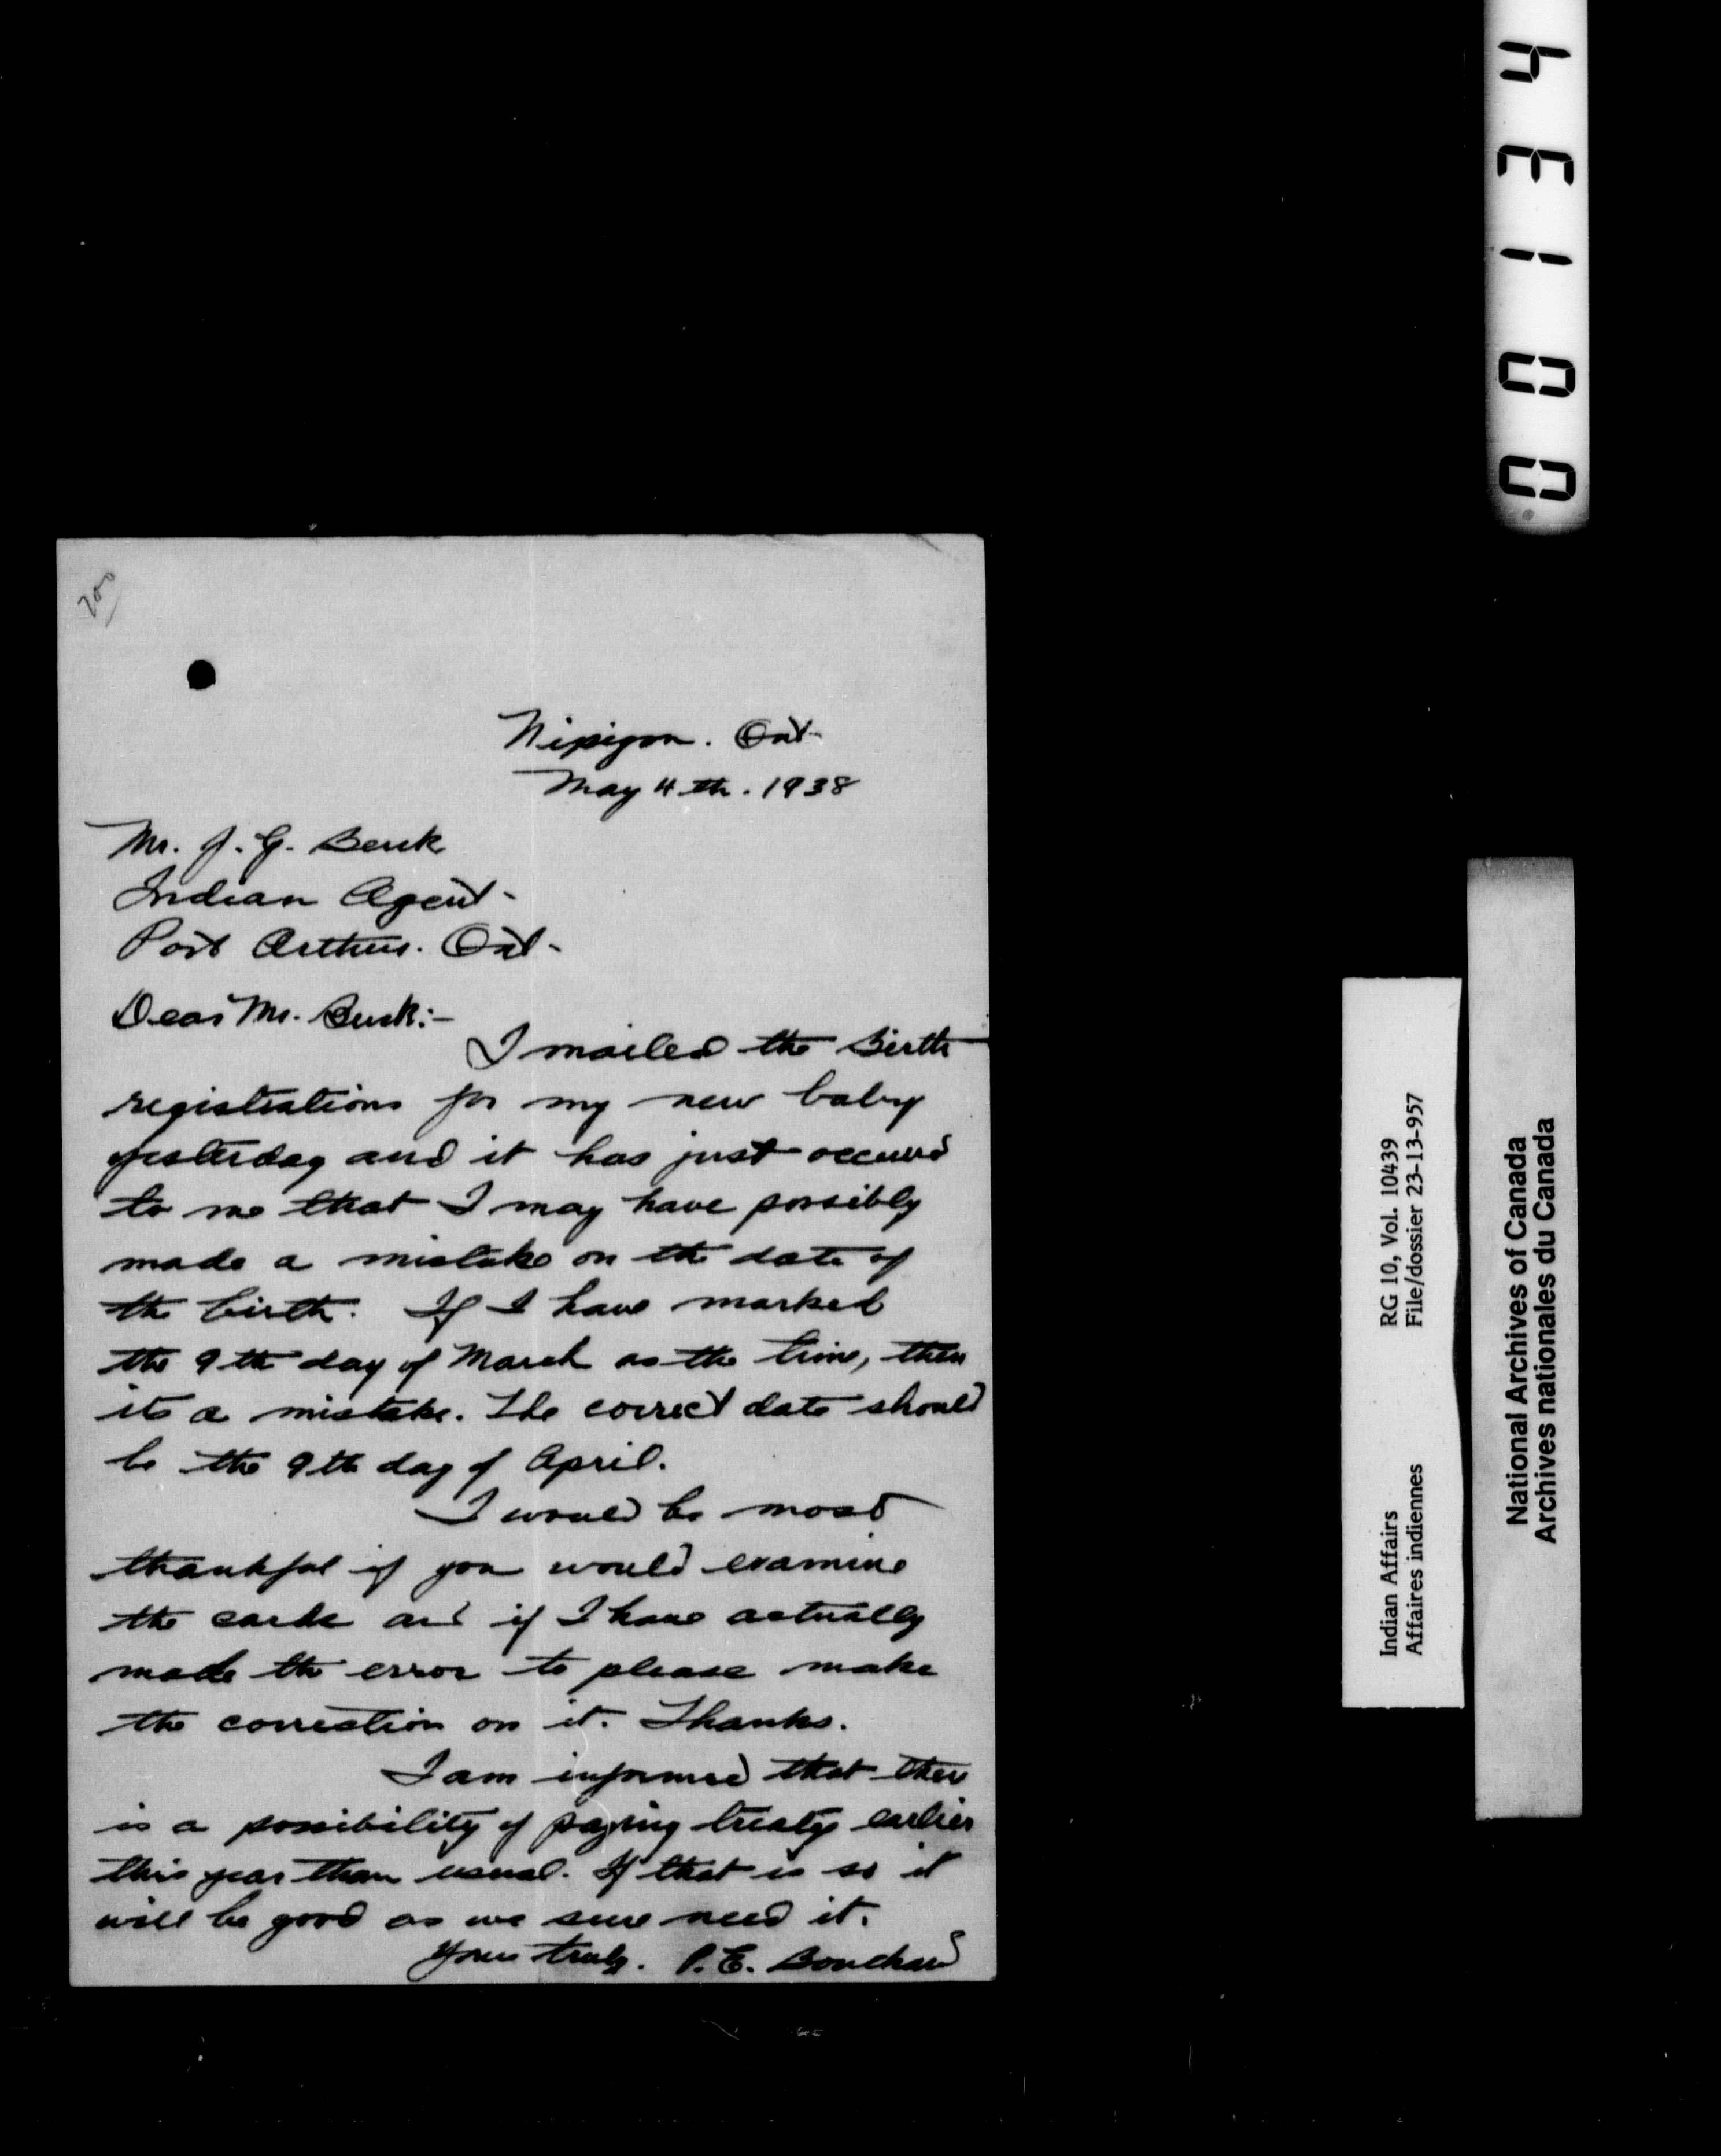 200
Nipigon. Ont.
May 4th. 1938
Mr. J. G. Burk
Indian Agent-
Port Arthur. Ont-
Dear Mr. Burk:-
I mailed the Birth
registrations for my new baby
yesterday and it has just occurred
to me that I may have possibly
made a mistake on the date of
the birth. If I have marked
the 9th day of March as the time, then
its a mistake. The correct date should
be the 9th day of April.
I would be most
thankful if you would examine
the cards and if I have actually
made the error to please make
the correction on it. Thanks.
I am informed that there
is a possibility of paying treaty earlier
this year than usual. If that is so it
will be good as we sure need it.
Yours truly. P. E. Bouchard
00134
RG 10, Vol. 10439
File/dossier 23-13-957
Indian Affairs
Affaires indiennes
National Archives of Canada
Archives nationales du Canada